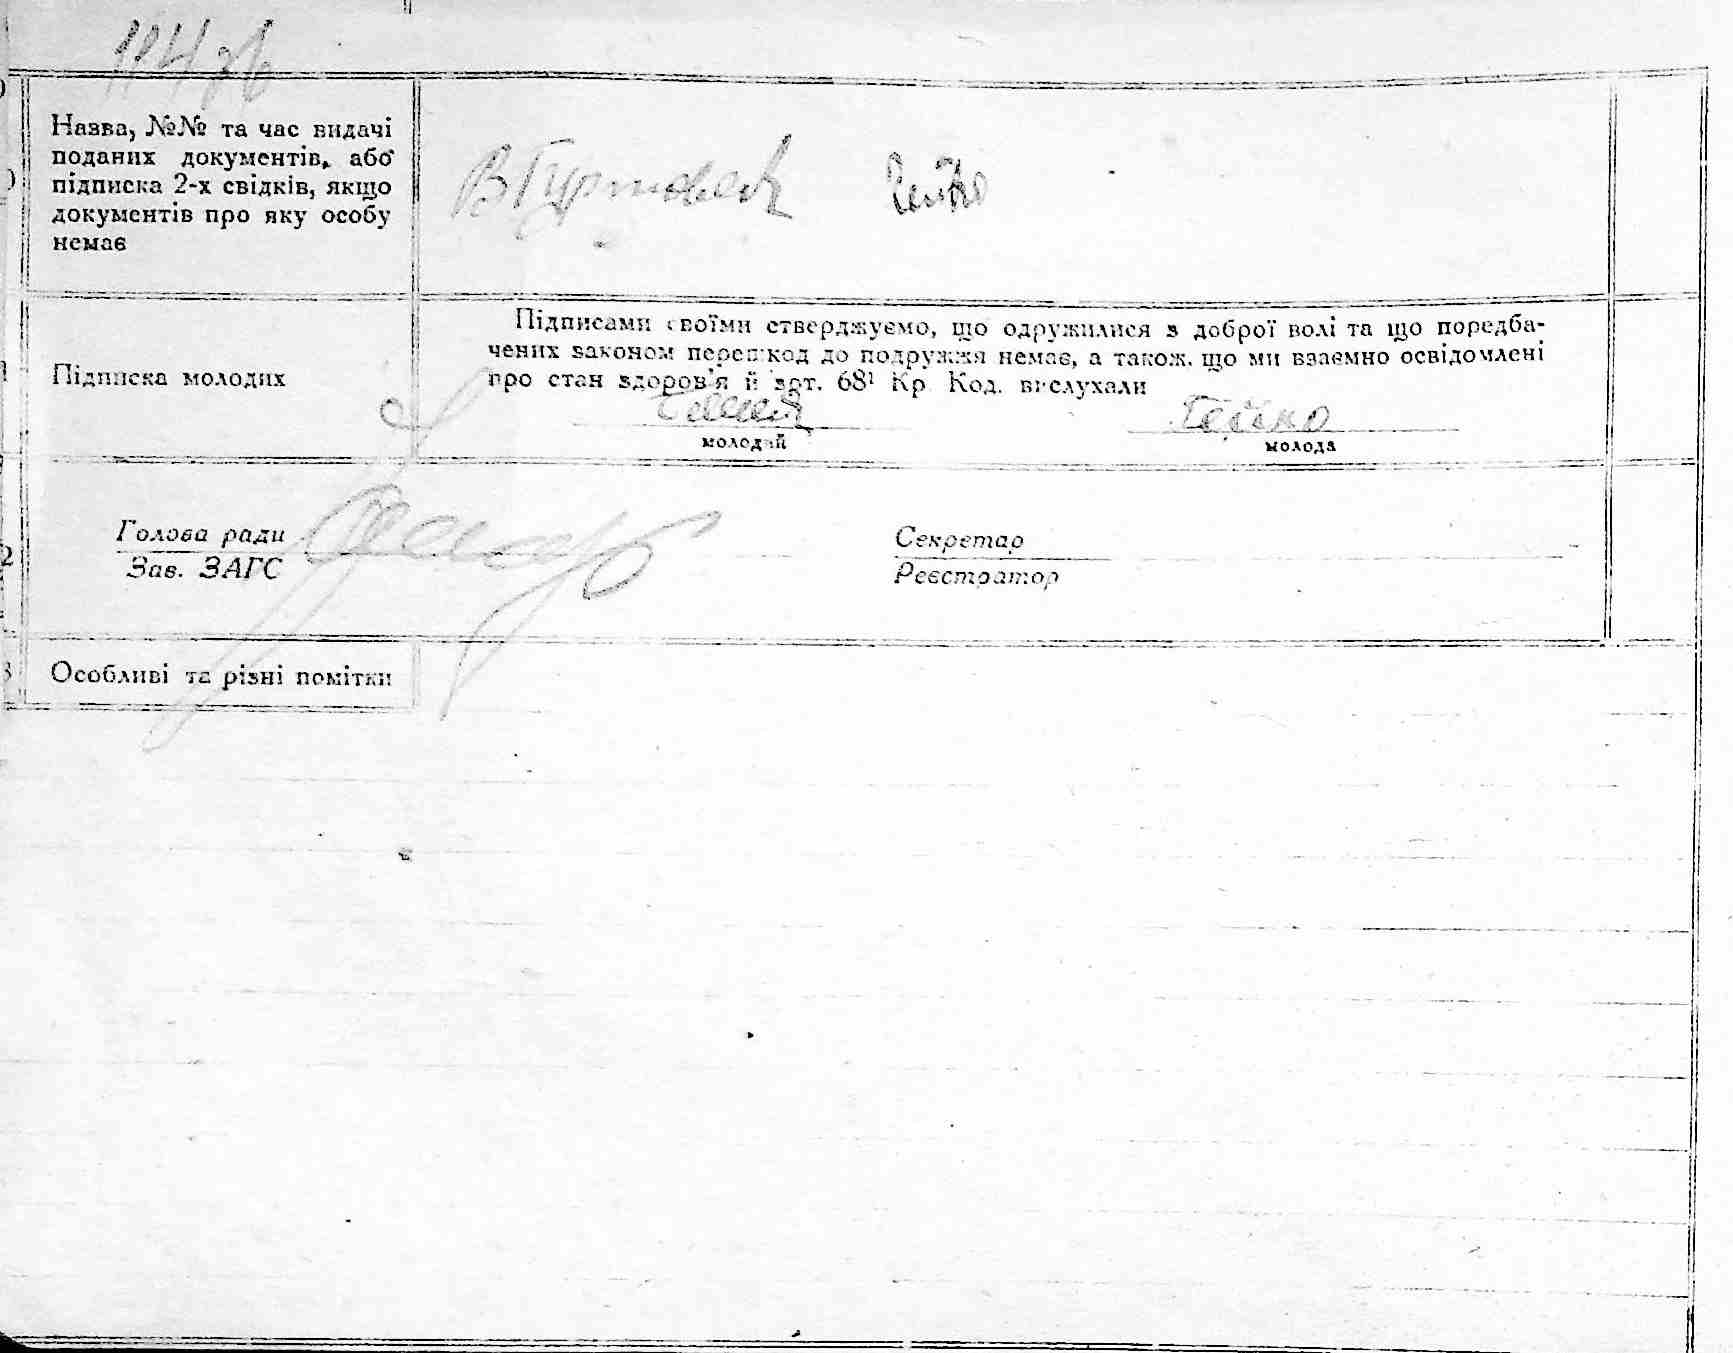 Назва, №№ та час видачі
поданих документів, або
підписка 2-х свідків, якщо
документів про яку особу
немає
Підписка молодих
Підписами своїми стверджуємо, що одружилися з доброї волі та що поредба-
чених законом перешкод до подружжя немає, а також, що ми взаємно освідомлені
про стан здоров'я й арт. 68¹ Кр. Код. вислухали
Гейко
молодий
молода
Голова ради
Зав. ЗАГС
Секретар
Реєстратор
Особливі та різні помітки